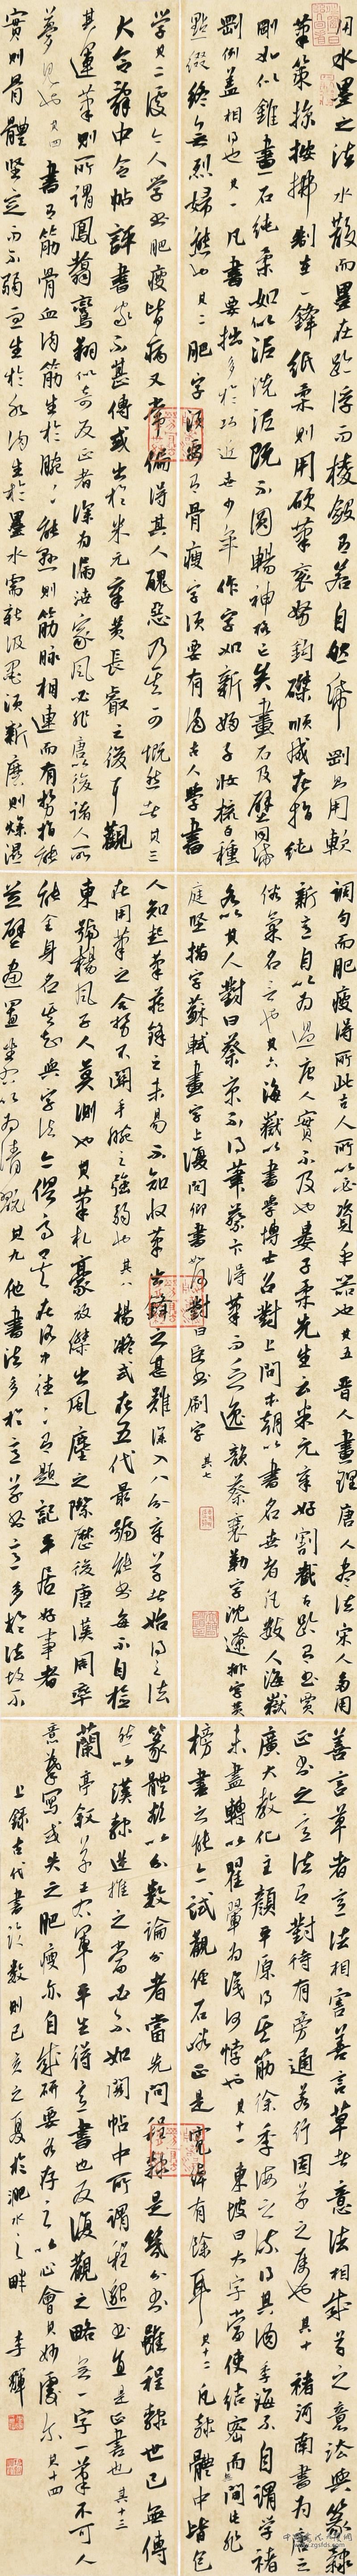 用水墨之法水散而墨在跡浮而棱斂有若自然紙剛則用軟
筆策掠按拂制在一鋒紙柔則用硬筆衮努鉤磔順成在指純
剛如以錐畫石純柔如以泥洗泥既不圓暢神格亡矣畫石及壁同紙
剛例蓋相得也其一凡書要拙多於巧近世少年作字如新婦子妝梳百種
點綴終無烈婦態也其二肥字須要有骨瘦字須要有肉古人學書
學其二處今人學書肥瘦皆病又常偏得其人醜惡乃其可慨然者其三
大令辭中令帖評書家不甚傳或出於米元章黃長睿之後耳觀
其運筆則所謂鳳翥鸞翔似奇反正者深為漏洩家風必非唐以後諸人所
夢見也其四書有筋骨血肉筋生於腕腕能懸則筋脈相連而有勢指能
實則骨體堅定而不弱血生於水肉生於墨水需新汲墨須新磨則燥濕
調勻而肥瘦得所此古人所以必資乎器也其五晉人畫理唐人盡法宋人多用
新意自以為過唐人實不及也婁子柔先生云米元章好割截古跡有書賈
俗氣名言也其六海嶽以書學博士召對上問本朝以書名世者凡數人海嶽
各以其人對曰蔡京不得筆蔡卞得筆而乏逸韻蔡襄勒字沈遼排字黃
庭堅描字蘇軾畫字上復問卿書如何對曰臣書刷字 其七
人知起筆藏鋒之未易不知收筆出鋒之甚難深入八分章草者始得之法
在用筆之合勢不關手腕之強弱也其八楊凝式在五代最號能書每不自檢
東號楊風子人莫測也其筆札豪放傑出風塵之際歷後唐漢周卒
能全身名其知與字法亦俱高矣在洛中往往有題記平居好事者
並壁畫置坐右以為清玩其九他書法多於意草書意多於法故不
善言草者意法相害善言草者意法相成草之意法與篆隸
正書之意法有對待有旁通若行固草之屬也其十褚河南書為唐之
廣大教化主顏平原得其筋徐季海之流得其肉季海不自謂學褚
未盡轉以翟翬為淺何悖也其十一東坡曰大字當使結密而無間此非
榜書之能今試觀經石峪正是寬綽有餘耳其十二凡隸體中皆包
篆體欲以分數論分者當先問程隸是幾分書雖程隸世已無傳
然以漢隸逆推之當必不如閣帖中所謂程邈書直是正書也其十三
蘭亭敘草王右軍平生得意書也反復觀之略無一字一筆不可人
意摹寫或失之肥瘦亦自成妍要各存之以心會其妙處爾其十四
上錄古代書論數則己亥之夏於淝水之畔 李輝